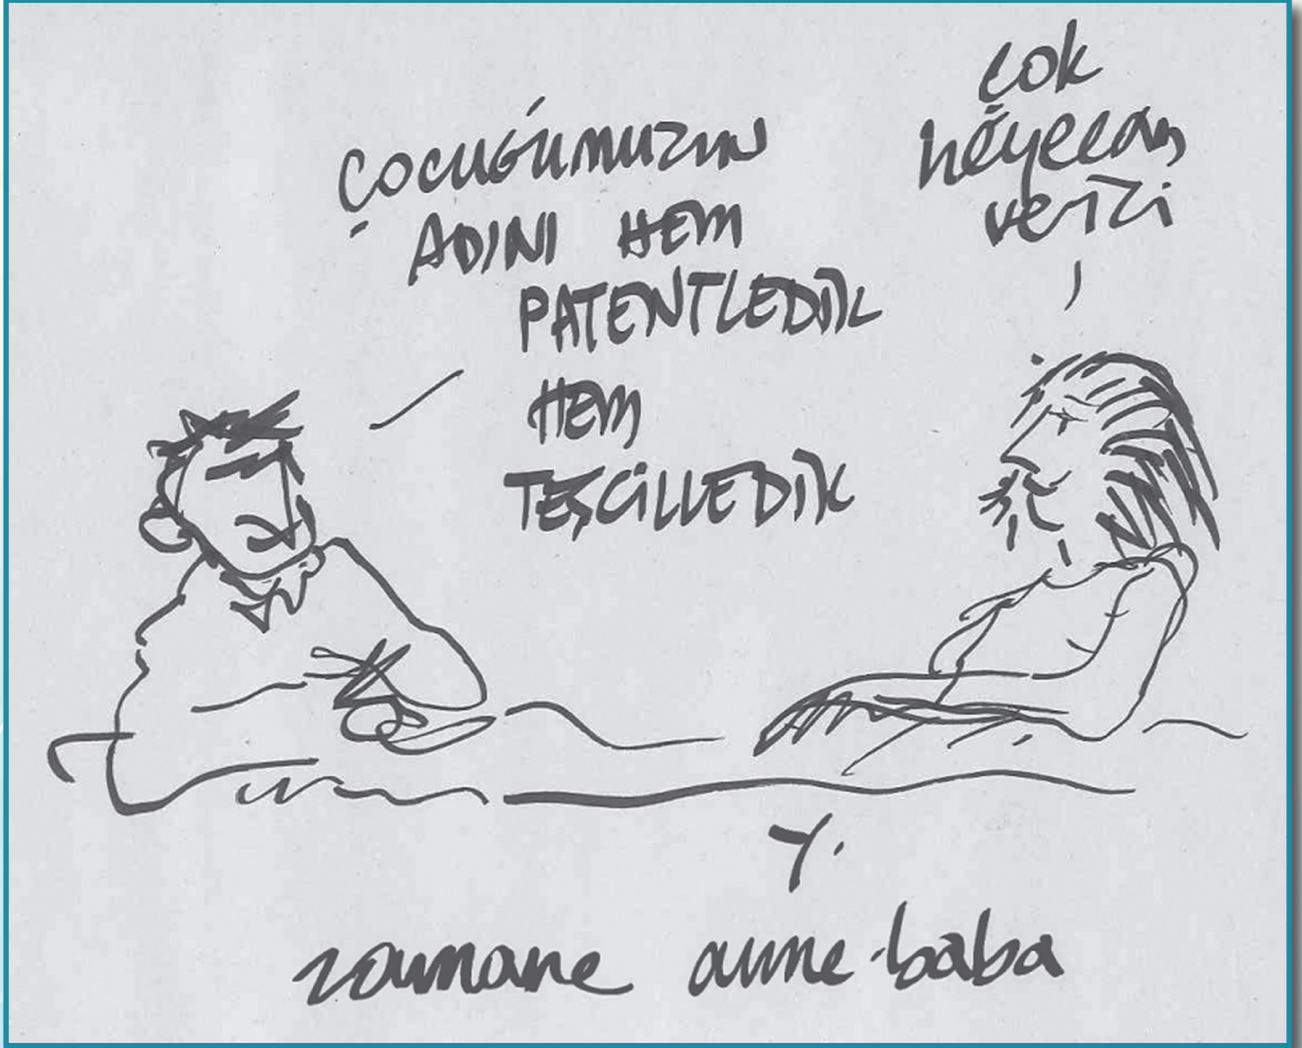 ÇOCUĞUMUZUN
ADINI HEM
PATENTLEDİK
HEM
TEŞCİLLEDİK
çok
heyecan
verici
Y.
zamane anne-baba